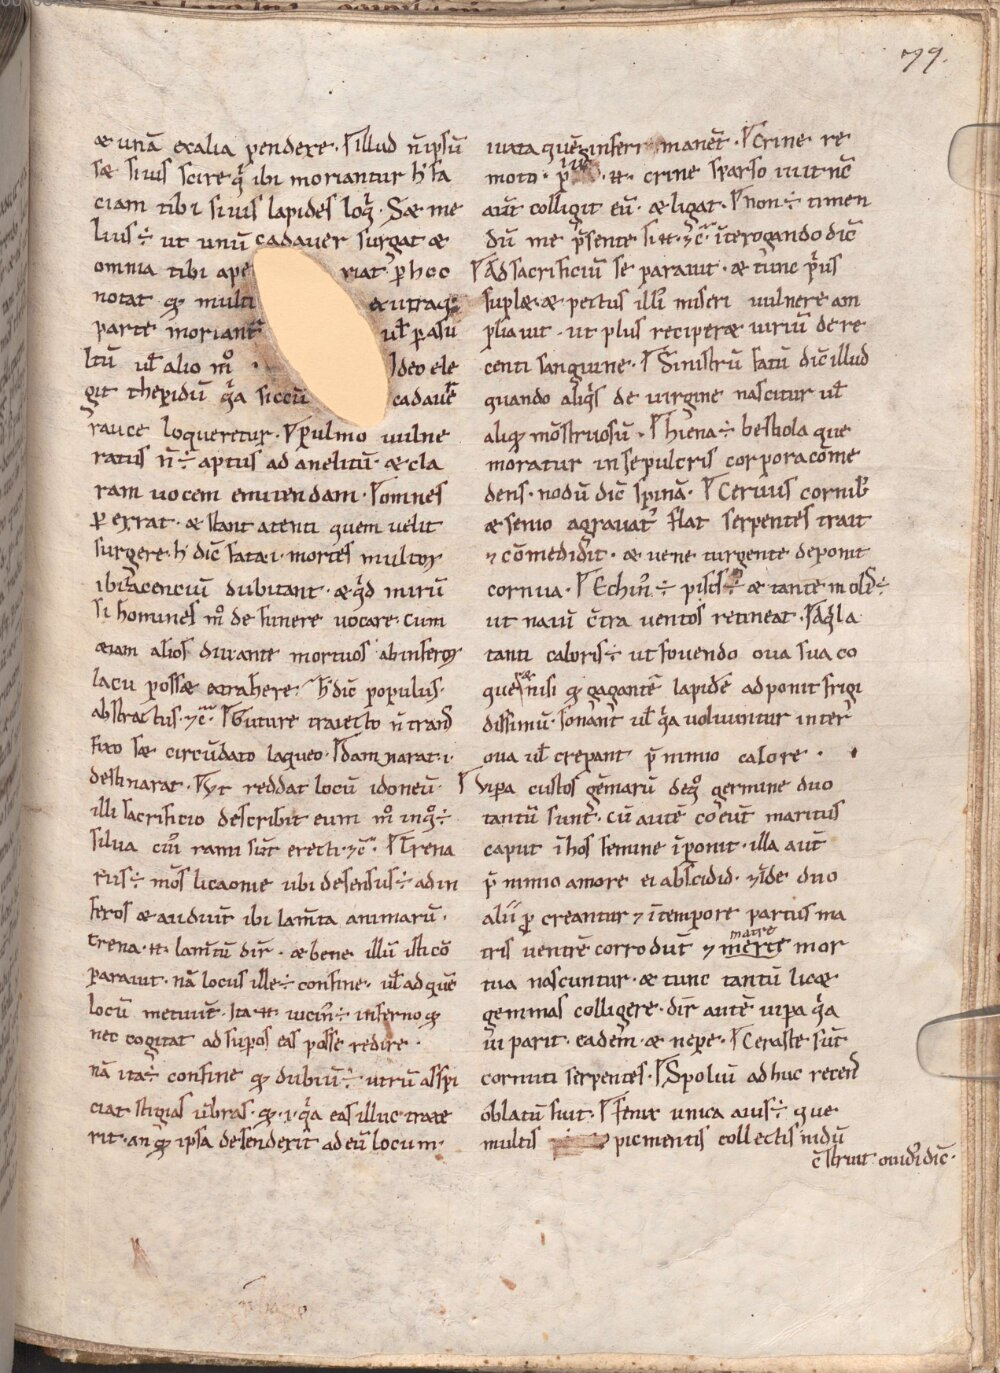 79.
æ unā exalia pendere. Illud n̄ ipsū
sæ siuis scire q̄ ibi moriantur h̄ fa
ciam tibi siuis lapides loq̄. Sæ me
lius ÷ ut unū cadauer surgat æ
omnia tibi ape riat. p̄ hoc
notat qd multi ex utraq;
parte moriant᷑ ul̄ p asu
ltū ul̄ alio mº Ideo ele
git thepidū q̄a siccū cadau̅e
rauce loqueretur. pulmo uulne
ratus n̄ ÷ aptus ad anelitū. æ cla
ram uocem emittendam. omnes
p errat. æ stant atenti quem uelit
surgere. h̄ dic̄ fata .i. mortes multoꝝ
ibi iacenciū dubitant. æ q̇d mirū
si homines mº de funere uocare. cum
etiam alios diuante mortuos ab inferoꝝ
lacu possæ extrahere. h̄ dic̄ populus.
abstractus. ⁊c̄. Guture traiecto n̄ trans
fixo sæ circūdato laqueo. damnarat .i.
destinarat. Vt reddat locū idoneū.
illi sacrificio describit eum mº in qº ÷
silua cui᷒ rami sūt erecti. ⁊c̄. Trena
rus ÷ mōs licaonie ubi desensus ÷ ad in
feros æ audiunt ibi lam̄ta animarū.
trena .n. lam̄tū dir̄. æ bene illū isticō
parauit. nā locus ille ÷ confine. ul̄ ad quē
locū metuūt. Ita .n. uicin᷒ ÷ inferno qd
nec cogitat ad supos eas posse redire.
nā ita ÷ confine qd dubiū ÷. utrū aspi
ciat stigias ūbras. qd .i. q̄a eas illuc traxe
rit. an qd ipsa desenderit ad eū locum.
iuxta quē inferi manēt. Crine re
moto. pius .n. crine sparso iuit nc̄
aūt colligit eū. æ ligat. non ÷ timen
dū me p̄sente si .n. ⁊c̄. īterogando dic̄
Ad sacrificiū se parauit. æ tunc p̄us
suplæ. æ pectus illi᷒ miseri uulnere am
pliauit. ut plus reciperæ uiriū de re
centi sanguine. Sinistrū fatū dic̄ illud
quando aliq̇s de uirgine nascitur ul̄
aliqd mōstruosū. Hiena ÷ bestiola que
moratur in sepulcris corpora cōme
dens. nodū dic̄ spinā. Ceruus cornib᷒
æ senio agrauat᷑ flat serpentes trait
⁊ cōmedidit. æ uene turgente deponit
cornua. Echin᷒ ÷ piscis æ tante mol̄ ÷
ut nauī c̄tra uentos retineat. Aq̇la
tanti caloris ÷ ut fouendo oua sua co
queræ nisi qd gagantē lapidē adponit frigi
dissimū. sonant ul̄ q̄a uoluuntur inter
oua ul̄ crepant p̄ nimio calore.
Vipa custos gēmarū deqº germine duo
tantū sunt. cū autē coeunt maritus
caput ī hos femine īponit. illa aūt
p̄ nimio amore ei abscidid. ⁊īde duo
alii p̄creantur ⁊ ī tempore partus ma
tris uentrē corrodūt ⁊ merte mor
matre
tua nascuntur. æ tunc tantū licæ
gemmas colligere. dir̄ autē uipa q̄a
ui parit. eadem. æ nepe. Ceraste sūt
cornuti serpentes. Spoliū adhuc recens
oblatū fuit. Fenix unica auis ÷ que
multis picmentis collectis nidū
c̄struit ouidi᷒ dic̄.